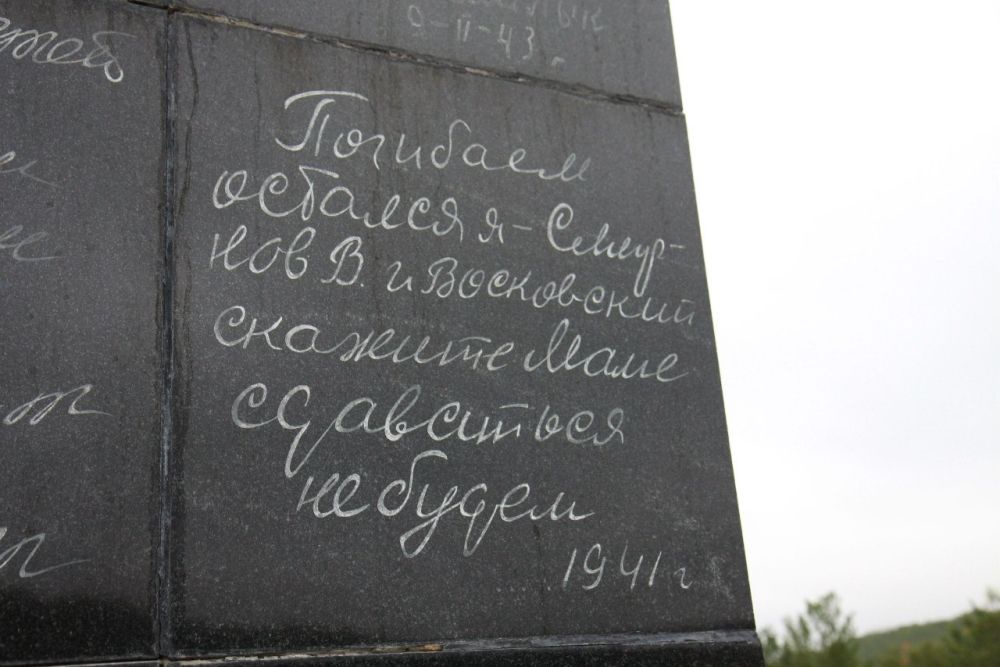 9-II-43 г.
Погибаем
остался я - Смиур-
нов В. и Восковский
скажите Маме
сдаваиться
не будем
1941 г